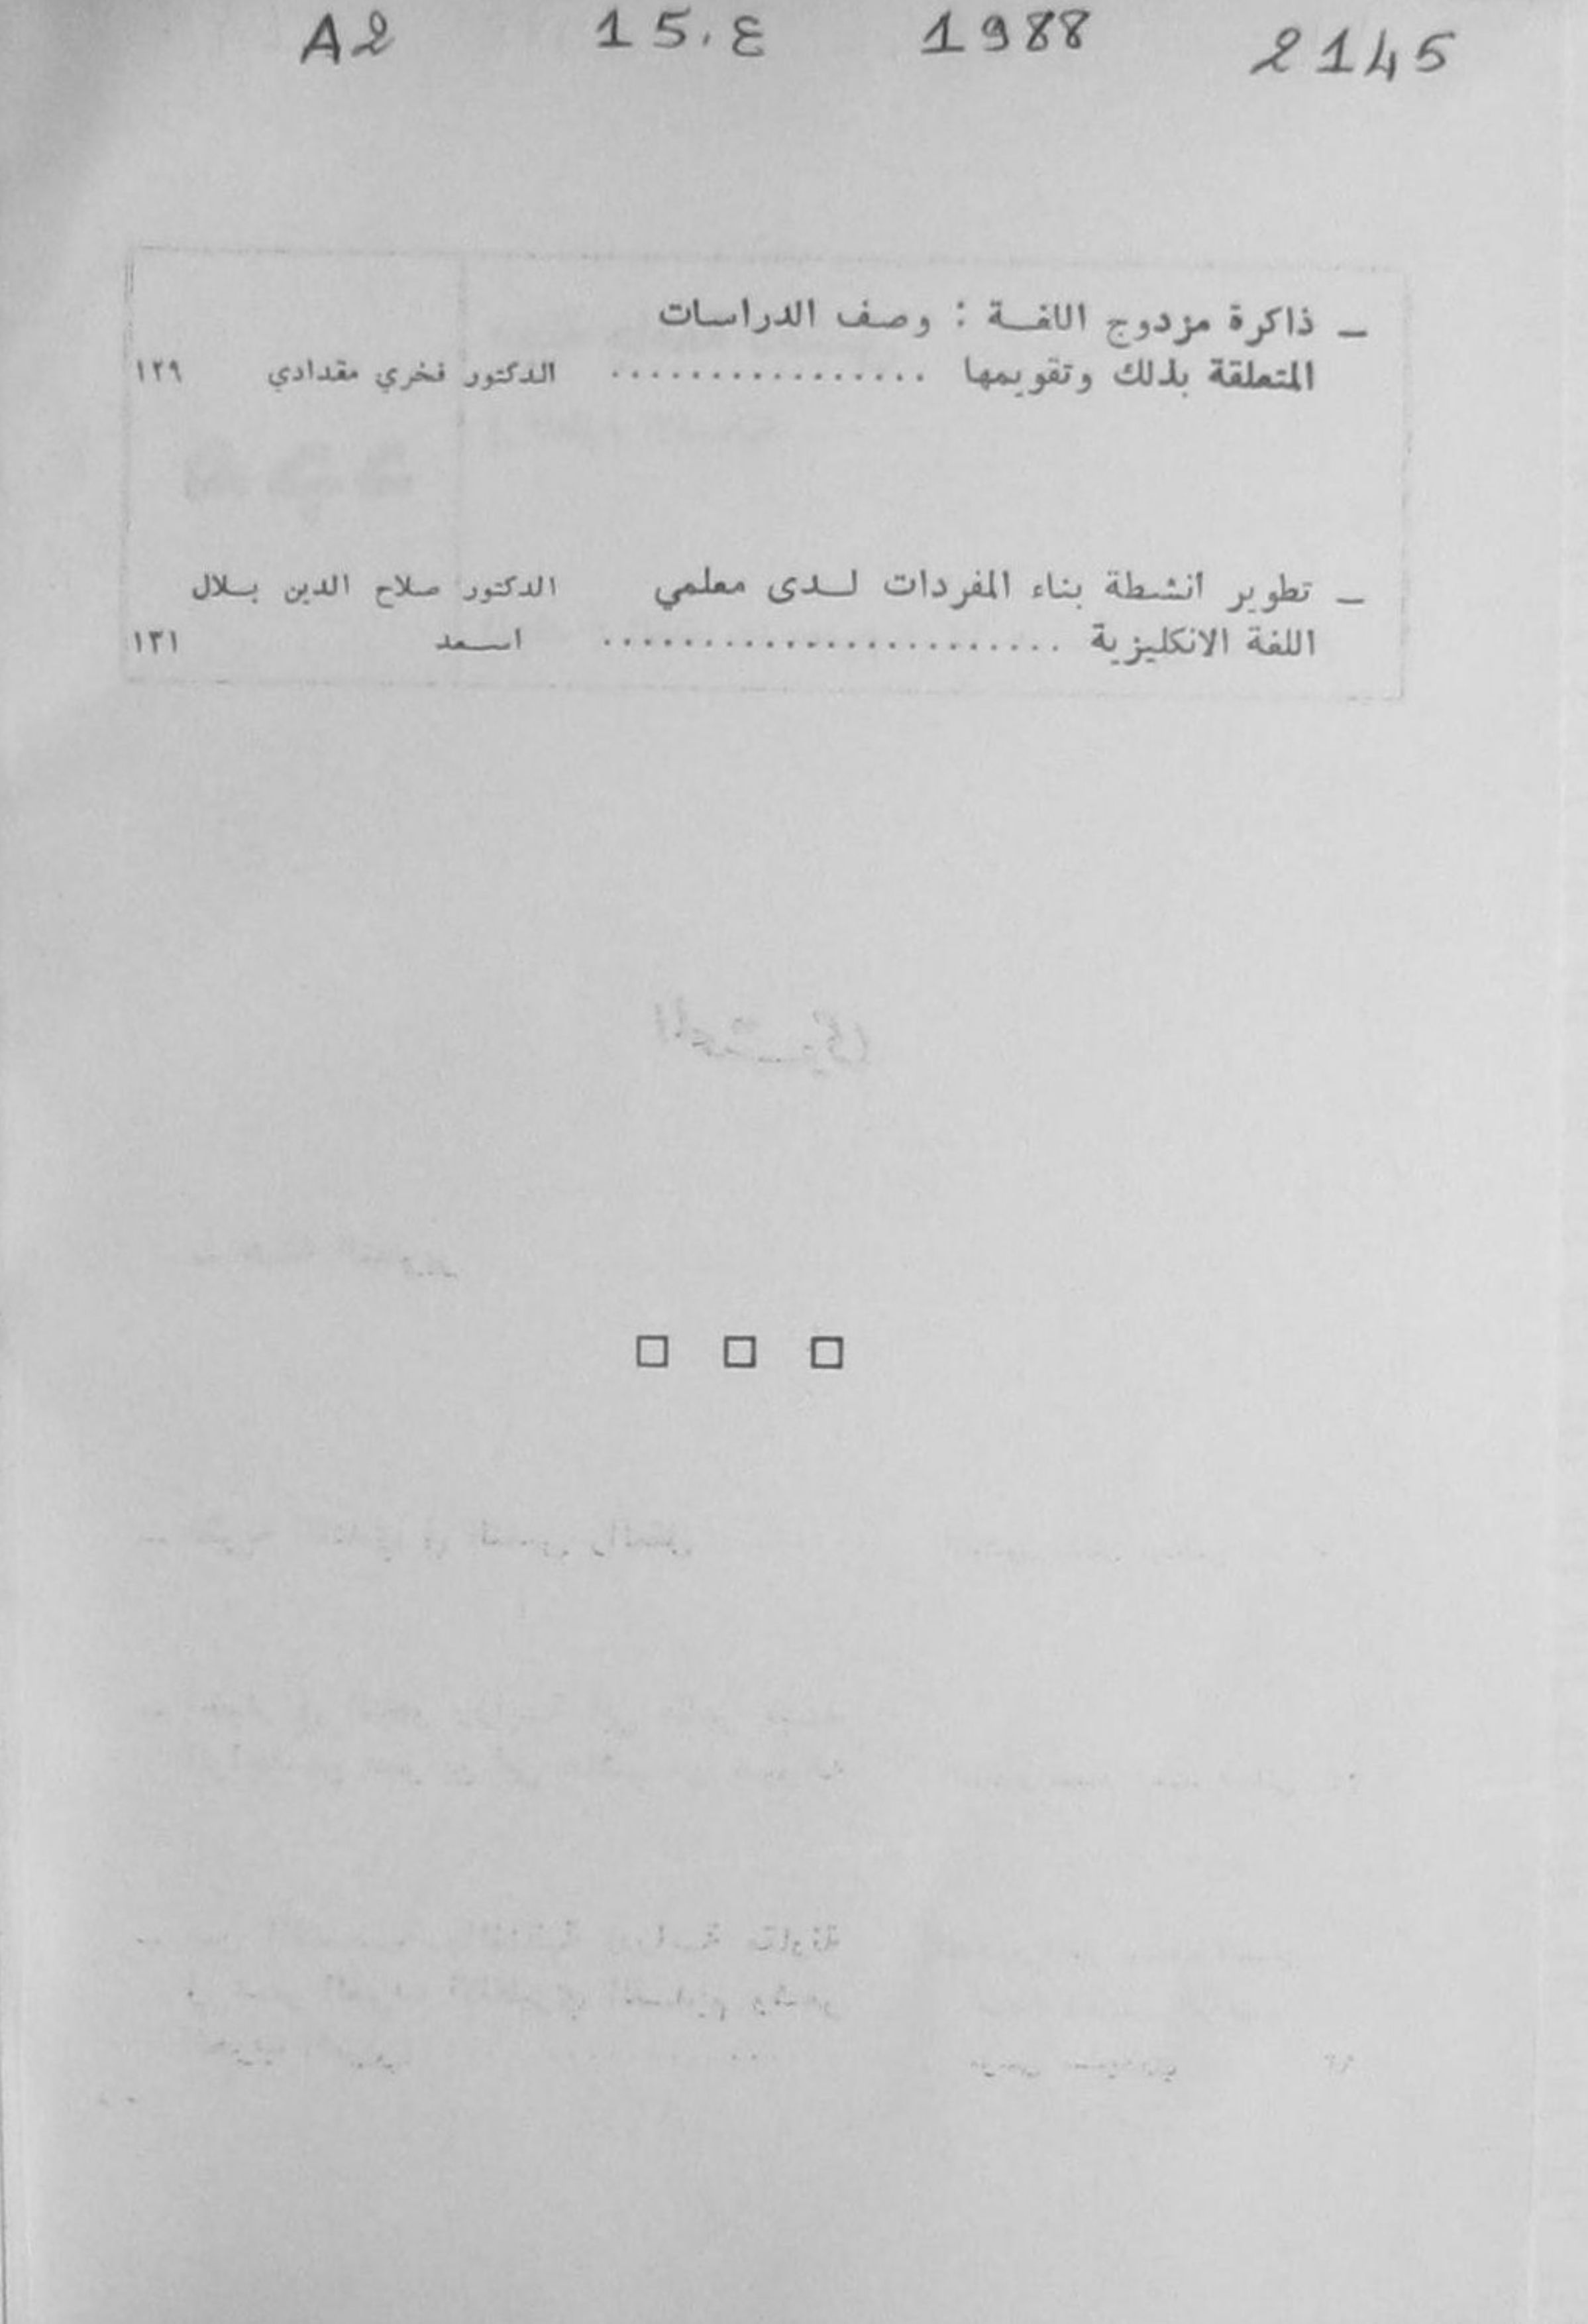 A2 15.ع 1988 2145
ـ ذاكرة مزدوج اللغـة : وصف الدراسات
المتعلقة بذلك وتقويمها ................ الدكتور فخري مقدادي ١٢٩
ـ تطوير انشطة بناء المفردات لـدى معلمي الدكتور صلاح الدين بـلال
اللغة الانكليزية ....................... اسـعد ١٣١